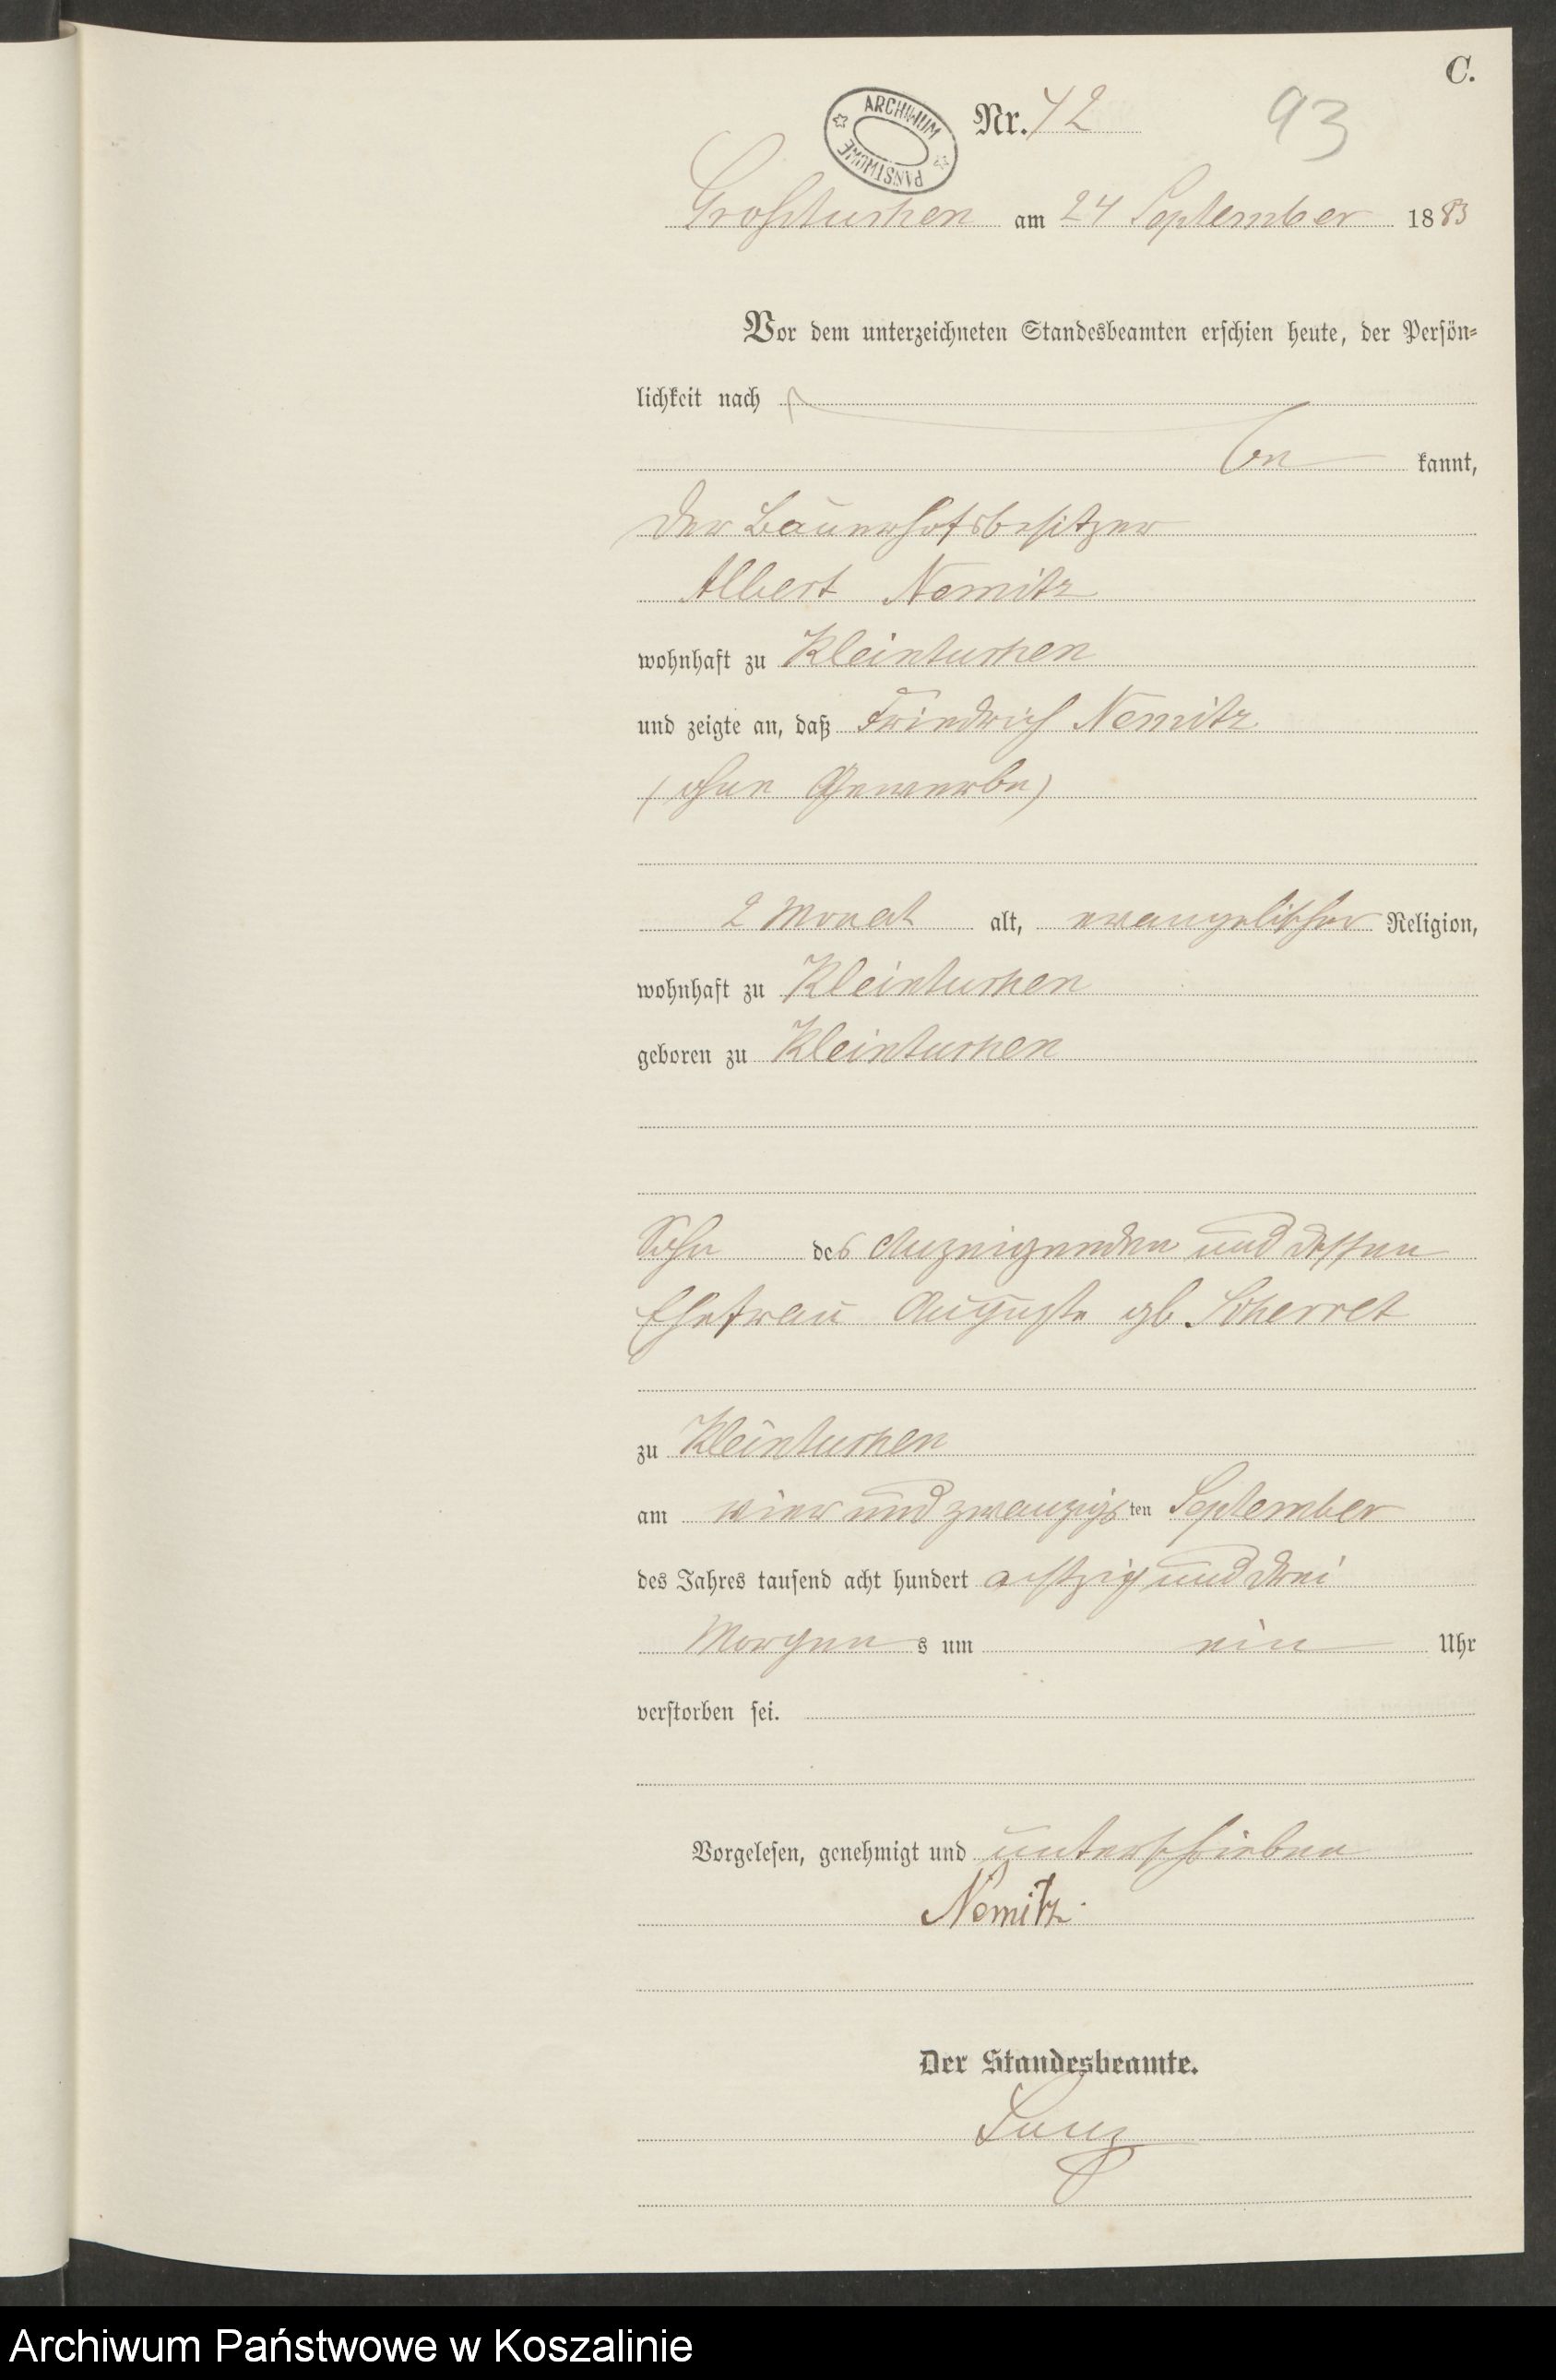 C.
ARCHIWUM PAŃSTWOWE
Nr. 42 93
Großtuchen am 24 September 1883
Vor dem unterzeichneten Standesbeamten erschien heute, der Persön-
lichkeit nach
be kannt,
der Bauerhofsbesitzer
Albert Nemitz
wohnhaft zu Kleintuchen
und zeigte an, daß Friedrich Nemitz
(ohne Gewerbe)
2 Monat alt, evangelischer Religion,
wohnhaft zu Kleintuchen
geboren zu Kleintuchen
Sohn des Anzeigenden und dessen
Ehefrau Auguste gb
zu Kleintuchen
am vier und zwanzigsten September
des Jahres tausend acht hundert achtzig und drei
Morgens um ein Uhr
verstorben sei.
Vorgelesen, genehmigt und unterschrieben
Nemitz.
Der Standesbeamte.
Archiwum Państwowe w Koszalinie